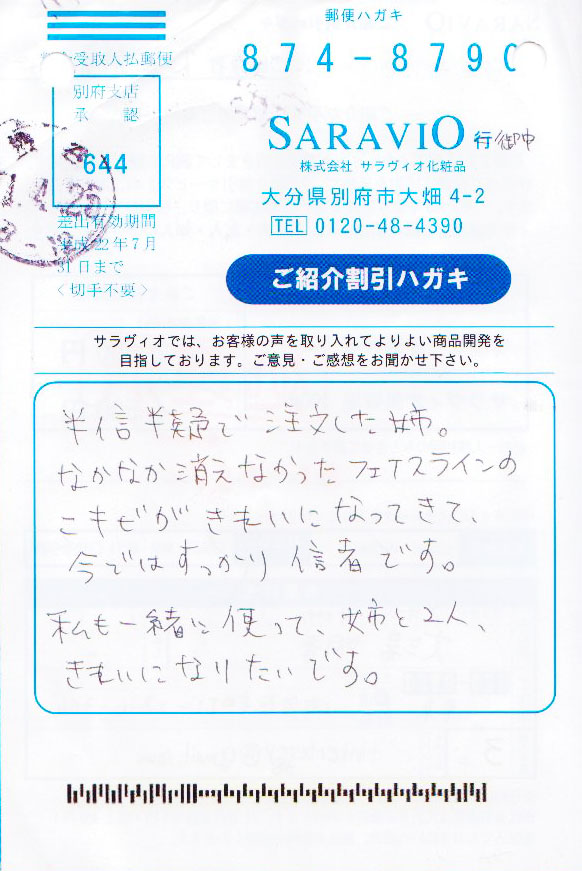 郵便ハガキ
874-8790
受取人払郵便
別府支店
承 認
644
差出有効期間
平成22年7月
31日まで
〈切手不要〉
SARAVIO 行 御中
株式会社 サラヴィオ化粧品
大分県別府市大畑 4-2
TEL 0120-48-4390
ご紹介割引ハガキ
サラヴィオでは、お客様の声を取り入れてよりよい商品開発を
目指しております。ご意見・ご感想をお聞かせ下さい。
半信半疑で注文した姉。
なかなか消えなかったフェイスラインの
こキビがきれいになってきて、
今ではすっかり信者です。
私も一緒に使って、姉と2人、
きれいになりたいです。